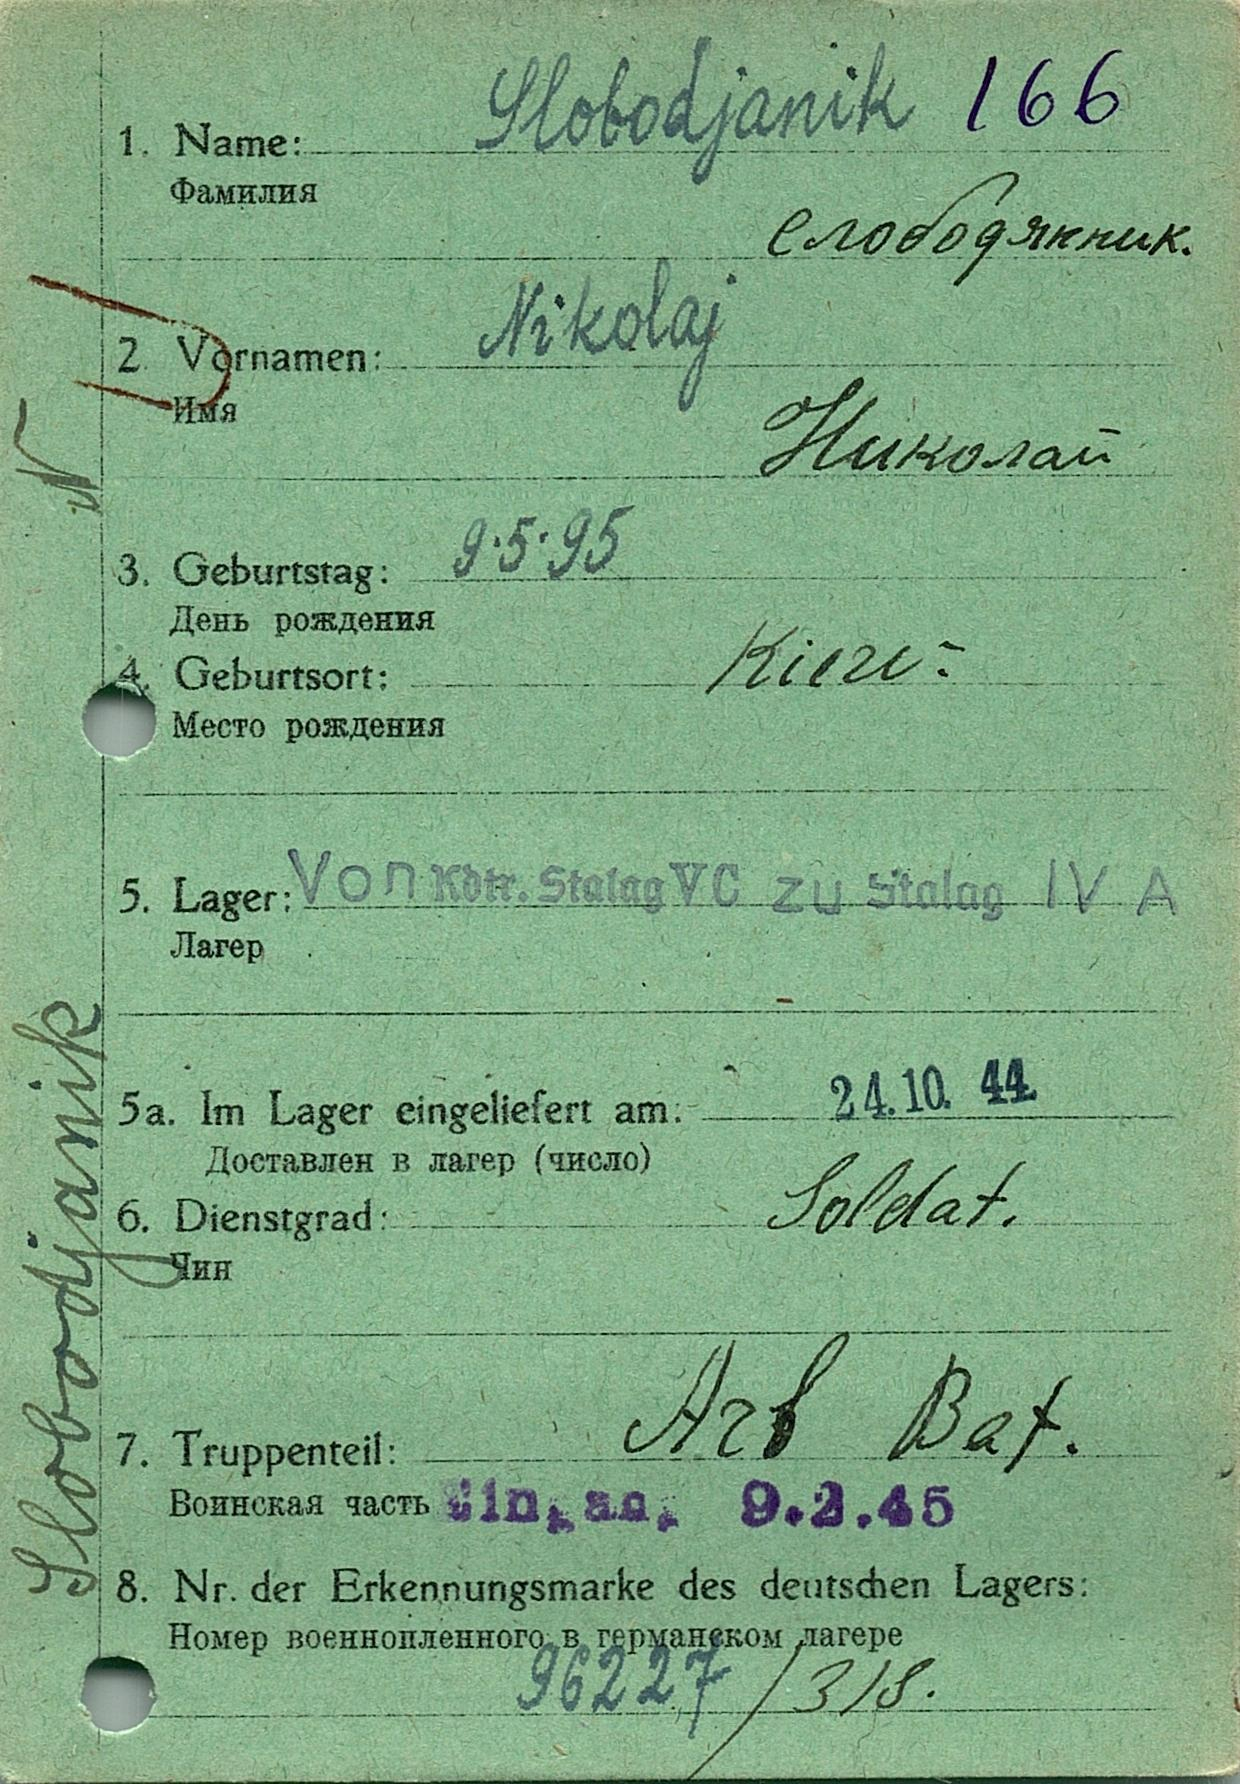 Slobodjanik 166
1. Name:
Фамилия
Слободянник.
Nikolaj
2. Vornamen:
Имя
Николай
N
9.5.95
3. Geburtstag:
День рождения
4. Geburtsort: Kiew:
Место рождения
5. Lager: Von Kdtr. Stalag VC zu Stalag IV A
Лагер
5a. Im Lager eingeliefert am: 24.10.44.
Доставлен в лагер (число)
6. Dienstgrad: Soldat.
Чин
Slobodjanik
7. Truppenteil: Arb Bat.
Воинская часть Eing. am, 9.2.45
8. Nr. der Erkennungsmarke des deutschen Lagers:
Номер военнопленного в германском лагере
96227 / 318.